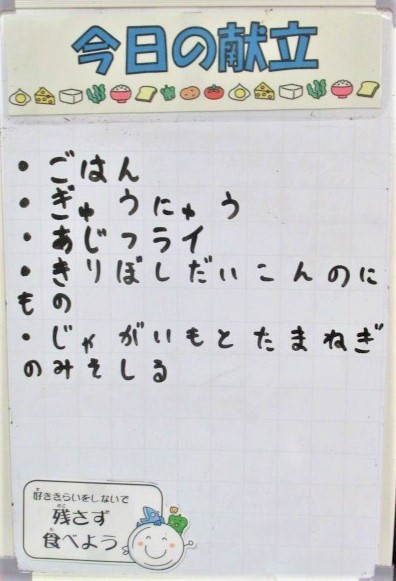 今日の献立
・ごはん
・ぎゅうにゅう
・あじフライ
・きりぼしだいこんのに
もの
・じゃがいもとたまねぎ
のみそしる
好ききらいをしないで
残さず
食べよう